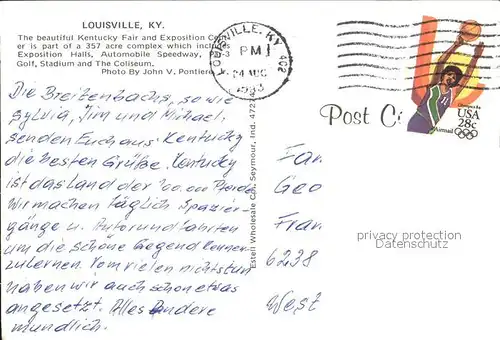 LOUISVILLE, KY.
The beautiful Kentucky Fair and Exposition Cen-
er is part of a 357 acre complex which includes
Exposition Halls, Automobile Speedway, Par-3
Golf, Stadium and The Coliseum.
Photo By John V. Pontiere
LOUISVILLE, KY
PM
24 AUG
1983
402
Olympics 84
USA
28c
Airmail
Post C
Die Breitenbachs, sowie
Sylvia, Jim und Michael,
senden Euch aus Kentucky
die besten Grüße. Kentucky
ist das Land der 100.000 Pferde
Wir machen täglich Spazier-
gänge u. Autorundfahrten
um die schöne Gegend kennen-
zulernen. Vom vielen nichtstun
haben wir auch schon etwas
angesetzt. Alles Andere
mündlich.
Estell Wholesale Co., Seymour, Ind. 472
Fam
Geo
Fran
6238
West
privacy protection
Datenschutz